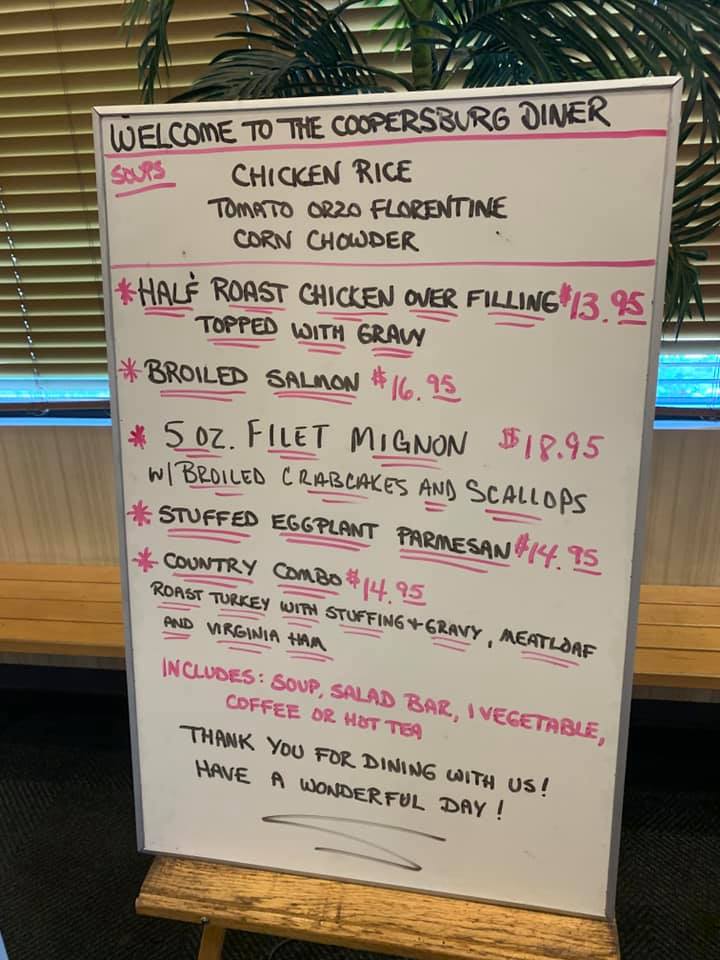 WELCOME TO THE COOPERSBURG DINER
SOUPS CHICKEN RICE
TOMATO ORZO FLORENTINE
CORN CHOWDER
*HALF ROAST CHICKEN OVER FILLING $13.95
TOPPED WITH GRAVY
* BROILED SALMON $16.95
* 5 OZ. FILET MIGNON $18.95
W/ BROILED CRABCAKES AND SCALLOPS
* STUFFED EGGPLANT PARMESAN $14.95
* COUNTRY COMBO $14.95
ROAST TURKEY WITH STUFFING + GRAVY, MEATLOAF
AND VIRGINIA HAM
INCLUDES: SOUP, SALAD BAR, 1 VEGETABLE,
COFFEE OR HOT TEA
THANK YOU FOR DINING WITH US!
HAVE A WONDERFUL DAY!